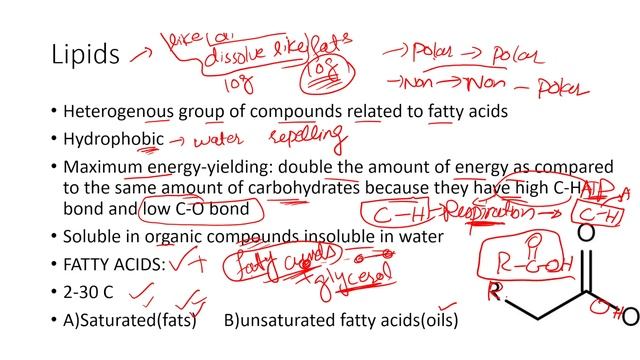 like
Lipids → dissolve like fats → Polar → Polar
10g 10g → Non → Non - Polar
• Heterogenous group of compounds related to fatty acids
• Hydrophobic → water repelling
• Maximum energy-yielding: double the amount of energy as compared
to the same amount of carbohydrates because they have high C-H ATP
bond and low C-O bond C-H → Respiration → C-H
• Soluble in organic compounds insoluble in water
• FATTY ACIDS: fatty acids R-C-OH O
• 2-30 C + glycerol R
• A)Saturated(fats) B)unsaturated fatty acids(oils) OH O